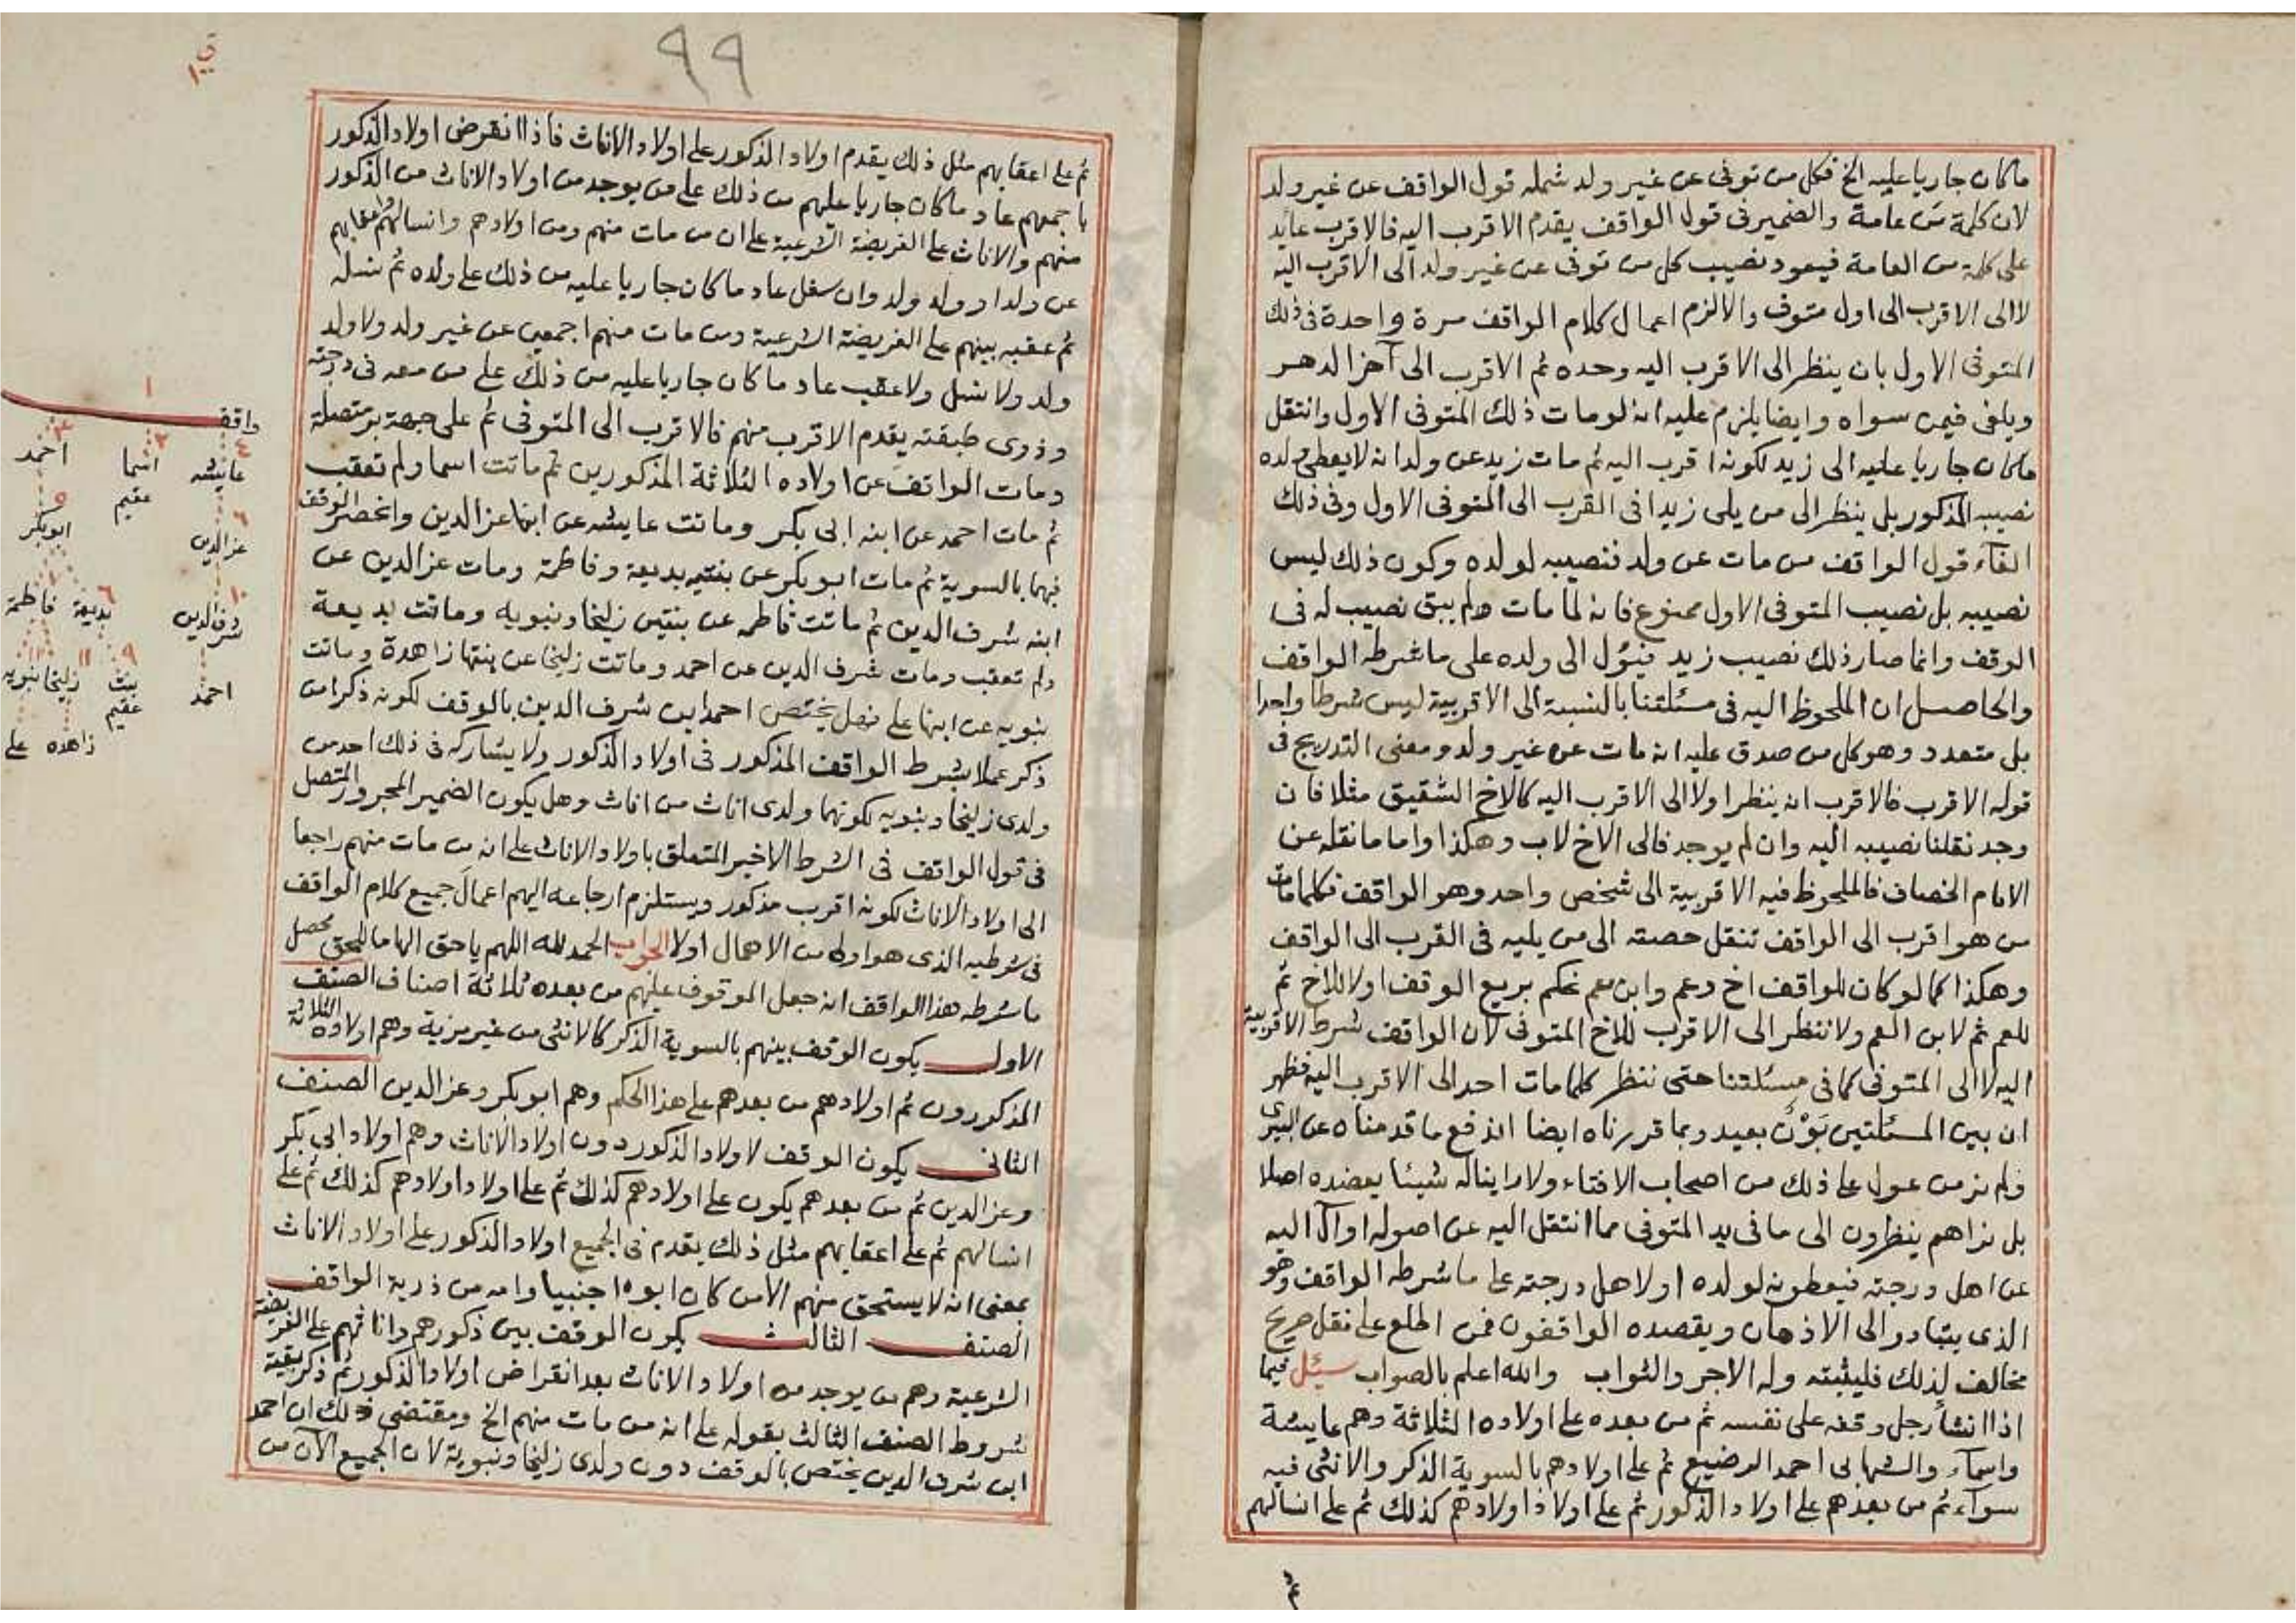 ما كان جاريا عليه الخ فكل من توفى عن غير ولد شمله قول الواقف عن غير ولد
لان كلمة من عامة والضمير فى قول الواقف يقدم الاقرب اليه فالاقرب عايد
على كلمة من العامة فيعود نصيب كل من توفى عن غير ولد الى الاقرب اليه
لا الى الاقرب الى اول متوف والا لزم اعمال كلام الواقف مرة واحدة فى ذلك
المتوفى الاول بان ينظر الى الاقرب اليه وحده ثم الاقرب الى آخر الدهر
ويلغى فيمن سواه وايضا يلزم عليه انه لو مات ذلك المتوفى الاول وانتقل
ما كان جاريا عليه الى زيد لكونه اقرب اليه ثم مات زيد عن ولد انه لا يعطى ولده
نصيبه المذكور بل ينظر الى من يلى زيدا فى القرب الى المتوفى الاول وفى ذلك
الغآء قول الواقف من مات عن ولد فنصيبه لولده وكون ذلك ليس
نصيبه بل نصيب المتوفى الاول ممنوع فانه لما مات ولم يبق نصيب له فى
الوقف وانما صار ذلك نصيب زيد فيؤل الى ولده على ما شرطه الواقف
والحاصل ان الملحوظ اليه فى مسئلتنا بالنسبة الى الاقربية ليس شرطا واحدا
بل متعدد وهو كل من صدق عليه انه مات عن غير ولد ومعنى التدريج فى
قوله الاقرب فالاقرب انه ينظر اولا الى الاقرب اليه كالاخ الشقيق مثلا فان
وجد نقلنا نصيبه اليه وان لم يوجد فالى الاخ لاب وهكذا واما ما نقله عن
الامام الخصاف فالملحوظ فيه الاقربية الى شخص واحد وهو الواقف فكلما مات
من هو اقرب الى الواقف تنقل حصته الى من يليه فى القرب الى الواقف
وهكذا كما لو كان للواقف اخ وعم وابن عم نحكم بريع الوقف اولا للاخ ثم
للعم ثم لابن العم ولا ننظر الى الاقرب للاخ المتوفى لان الواقف شرط الاقربية
اليه لا الى المتوفى كما فى مسئلتنا حتى ننظر كلما مات احد الى الاقرب اليه فظهر
ان بين المسئلتين بَوْنٌ بعيد وبما قررناه ايضا اندفع ما قدمناه عن البيرى
ولم نر من عول على ذلك من اصحاب الافتاء ولا راينا له شيئا يعضده اصلا
بل نراهم ينظرون الى ما فى يد المتوفى مما انتقل اليه عن اصوله او آل اليه
عن اهل درجته فيعطونه لولده او لاهل درجته على ما شرطه الواقف وهو
الذى يتبادر الى الاذهان ويقصده الواقفون فمن اطلع على نقل صريح
مخالف لذلك فليثبته وله الاجر والثواب والله اعلم بالصواب سئل فيما
اذا انشأ رجل وقفه على نفسه ثم من بعده على اولاده الثلاثة وهم عايشة
واسمآء والشهابى احمد الرضيع ثم على اولادهم بالسوية الذكر والانثى فيه
سوآء ثم من بعدهم على اولاد الذكور ثم على اولاد اولادهم كذلك ثم على انسالهم
ثم
٩٩
ثم على اعقابهم مثل ذلك يقدم اولاد الذكور على اولاد الاناث فاذا انقرض اولاد الذكور
باجمعهم عاد ما كان جاريا عليهم من ذلك على من يوجد من اولاد الاناث من الذكور
منهم والاناث على الفريضة الشرعية على ان من مات منهم ومن اولادهم وانسالهم واعقابهم
عن ولد او ولد ولد وان سفل عاد ما كان جاريا عليه من ذلك على ولده ثم نسله
ثم عقبه بينهم على الفريضة الشرعية ومن مات منهم اجمعين عن غير ولد ولا ولد
ولد ولا نسل ولا عقب عاد ما كان جاريا عليه من ذلك على من معه فى درجته
وذوى طبقته يقدم الاقرب منهم فالاقرب الى المتوفى ثم على جهة بر متصلة
ومات الواقف عن اولاده الثلاثة المذكورين ثم ماتت اسما ولم تعقب
ثم مات احمد عن ابنه ابى بكر وماتت عايشه عن ابنها عز الدين وانحصر الوقف
فيهما بالسوية ثم مات ابو بكر عن بنتيه بديعة وفاطمة ومات عز الدين عن
ابنه شرف الدين ثم ماتت فاطمه عن بنتين زليخا ونبويه وماتت بديعة
ولم تعقب ومات شرف الدين عن احمد وماتت زليخا عن بنتها زاهدة وماتت
نبويه عن ابنها على فهل يختص احمد ابن شرف الدين بالوقف لكونه ذكرا من
ذكر عملا بشرط الواقف المذكور فى اولاد الذكور ولا يشاركه فى ذلك احد من
ولدى زليخا ونبويه لكونهما ولدى اناث من اناث وهل يكون الضمير المجرور المتصل
فى قول الواقف فى الشرط الاخير المتعلق باولاد الاناث على انه من مات منهم راجعا
الى اولاد الاناث لكونه اقرب مذكور ويستلزم ارجاعه اليهم اعمال جميع كلام الواقف
فى شرطيه الذى هو اولى من الاهمال اولا الجواب الحمد لله اللهم يا حق الهاما للحق محصل
ما شرطه هذا الواقف انه جعل الموقوف عليهم من بعده ثلاثة اصناف الصنف
الاول يكون الوقف بينهم بالسوية الذكر كالانثى من غير مزية وهم اولاده الثلاثة
المذكورون ثم اولادهم من بعدهم على هذا الحكم وهم ابو بكر وعز الدين الصنف
الثانى يكون الوقف لاولاد الذكور دون اولاد الاناث وهم اولاد ابى بكر
وعز الدين ثم من بعدهم يكون على اولادهم كذلك ثم على اولاد اولادهم كذلك ثم على
انسالهم ثم على اعقابهم مثل ذلك يقدم فى الجميع اولاد الذكور على اولاد الاناث
بمعنى انه لا يستحق منهم الا من كان ابوه اجنبيا وامه من ذرية الواقف
الصنف الثالث يكون الوقف بين ذكورهم واناثهم على الفريضة
الشرعية وهم من يوجد من اولاد الاناث بعد انقراض اولاد الذكور ثم ذكر بقية
شروط الصنف الثالث بقوله على انه من مات منهم الخ ومقتضى ذلك ان احمد
ابن شرف الدين يختص بالوقف دون ولدى زليخا ونبوية لان الجميع الآن من
١
واقف
٤ ٢ ٣
عايشه اسما احمد
عقيم
٦ ٥
عز الدين ابوبكر
١٠ ٦
شرف الدين بديعة فاطمة
٩ ١١ ١٢
احمد بنت زليخا نبويه
عقيم
زاهده على